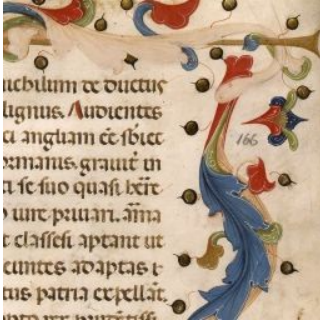 nichilum de ductus
lignus. Audientes
ci angliam eē sbiec
ormanis. grauit͛ in
ti se suo quasi here
o iure priuari. arma
t classesi aptant ut
cuntes adaptas t
tus patria expellāt.
166